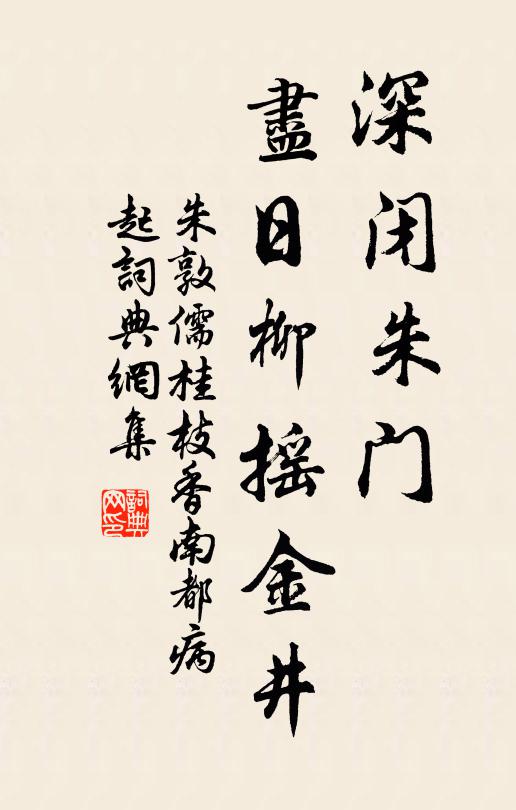 深闭朱门
盡日柳摇金井
朱敦儒桂枝香南都病
起詞典網集
詞典
网印